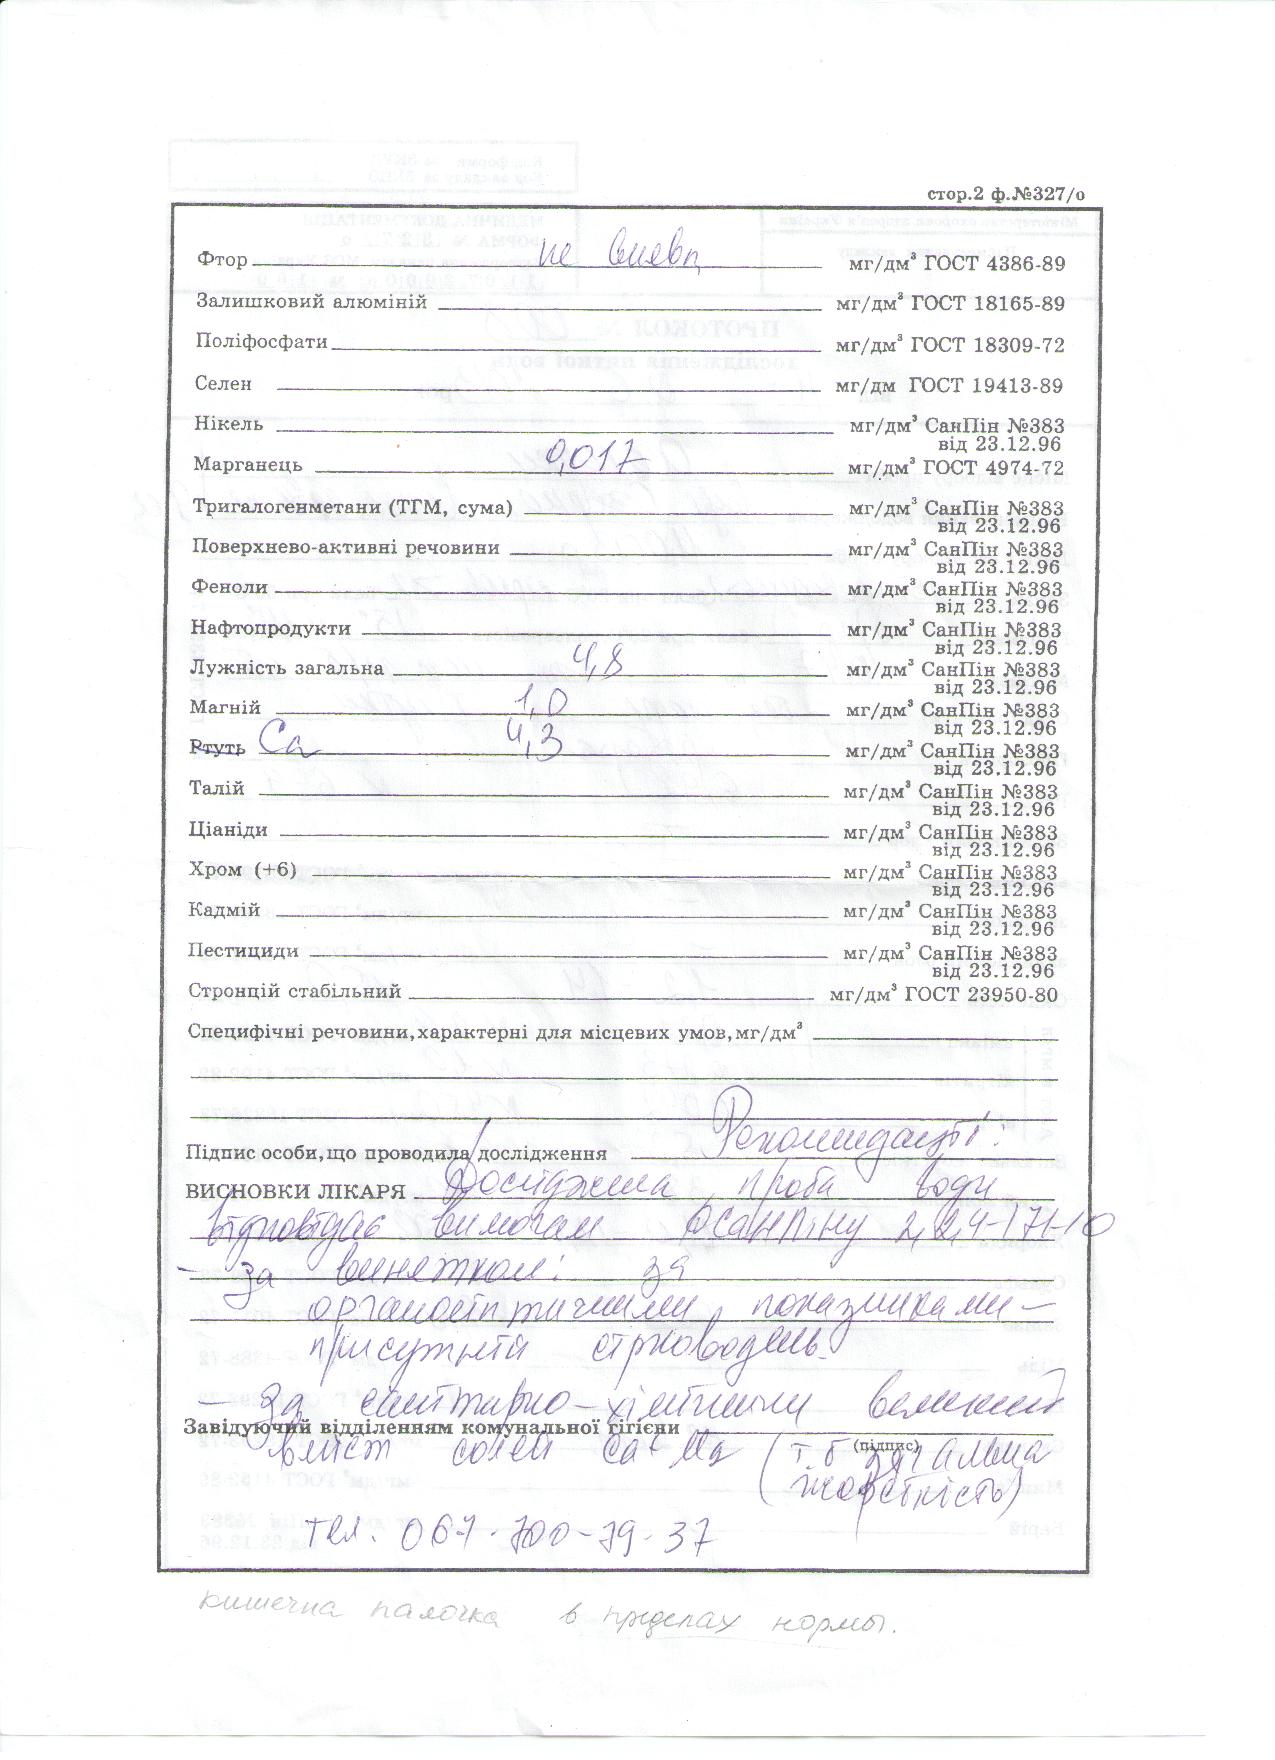 стор.2 ф.№327/о
Фтор не виявл мг/дм³ ГОСТ 4386-89
Залишковий алюміній мг/дм³ ГОСТ 18165-89
Поліфосфати мг/дм³ ГОСТ 18309-72
Селен мг/дм ГОСТ 19413-89
Нікель мг/дм³ СанПін №383
від 23.12.96
Марганець 0,017 мг/дм³ ГОСТ 4974-72
Тригалогенметани (ТГМ, сума) мг/дм³ СанПін №383
від 23.12.96
Поверхнево-активні речовини мг/дм³ СанПін №383
від 23.12.96
Феноли мг/дм³ СанПін №383
від 23.12.96
Нафтопродукти мг/дм³ СанПін №383
від 23.12.96
Лужність загальна 4,8 мг/дм³ СанПін №383
від 23.12.96
Магній 1,0 мг/дм³ СанПін №383
від 23.12.96
Ртуть Ca 4,3 мг/дм³ СанПін №383
від 23.12.96
Талій мг/дм³ СанПін №383
від 23.12.96
Ціаніди мг/дм³ СанПін №383
від 23.12.96
Хром (+6) мг/дм³ СанПін №383
від 23.12.96
Кадмій мг/дм³ СанПін №383
від 23.12.96
Пестициди мг/дм³ СанПін №383
від 23.12.96
Стронцій стабільний мг/дм³ ГОСТ 23950-80
Специфічні речовини, характерні для місцевих умов, мг/дм³
Підпис особи, що проводила дослідження Рекомендації:
ВИСНОВКИ ЛІКАРЯ Досліджена проба води
відповідає вимогам ДСанПіну 2,2,4-171-10
- за винятком: за
органолептичними показниками -
присутній сірководень.
- за санітарно-хімічними великий
Завідуючий відділенням комунальної гігієни
(підпис)
вміст солей Ca і Mg (т.б загальна
жорсткість)
тел. 067-700-79-37
кишечна палочка в пределах нормы.